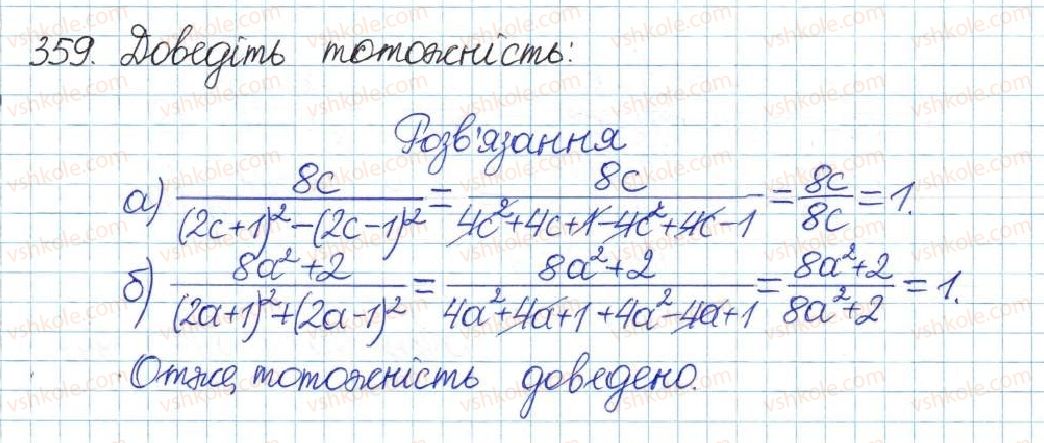 359. Доведіть тотожність:
Розв'язання
а) 8c/((2c+1)²-(2c-1)²) = 8c/(4c²+4c+1-4c²+4c-1) = 8c/8c = 1.
б) (8a²+2)/((2a+1)²+(2a-1)²) = (8a²+2)/(4a²+4a+1+4a²-4a+1) = (8a²+2)/(8a²+2) = 1.
Отже, тотожність доведено.